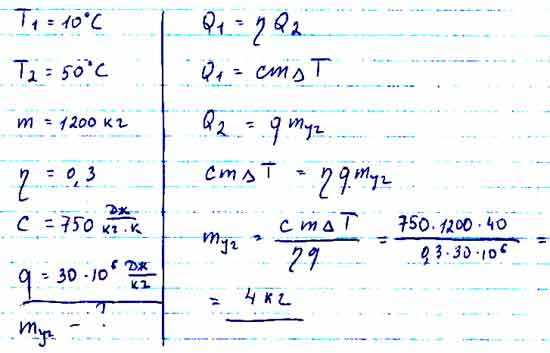 T₁ = 10°C
T₂ = 50°C
m = 1200 кг
η = 0,3
C = 750 Дж/кг·К
q = 30·10⁶ Дж/кг
m_уг - ?
Q₁ = η Q₂
Q₁ = cm△T
Q₂ = q m_уг
cm△T = ηq m_уг
m_уг = cm△T/ηq = 750·1200·40/0,3·30·10⁶ =
= 4 кг